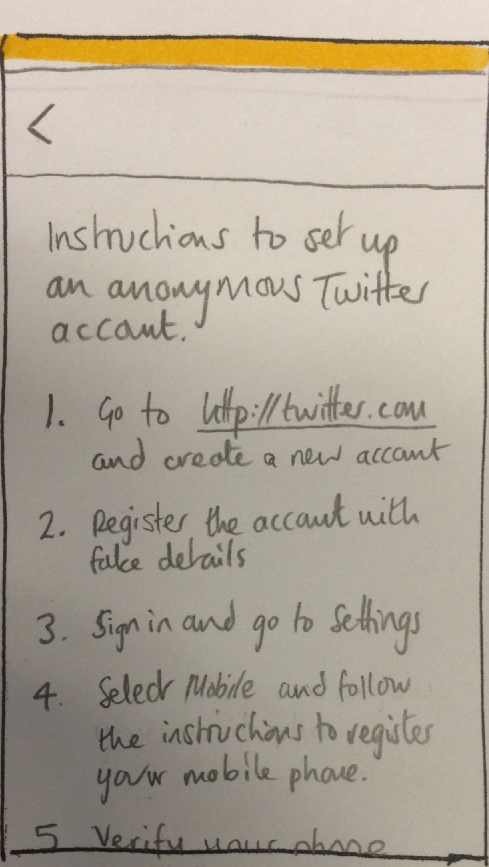 <
Instructions to set up
an anonymous Twitter
account.
1. Go to http://twitter.com
and create a new account
2. Register the account with
fake details
3. Sign in and go to Settings
4. Select Mobile and follow
the instructions to register
your mobile phone.
5 Verify your phone